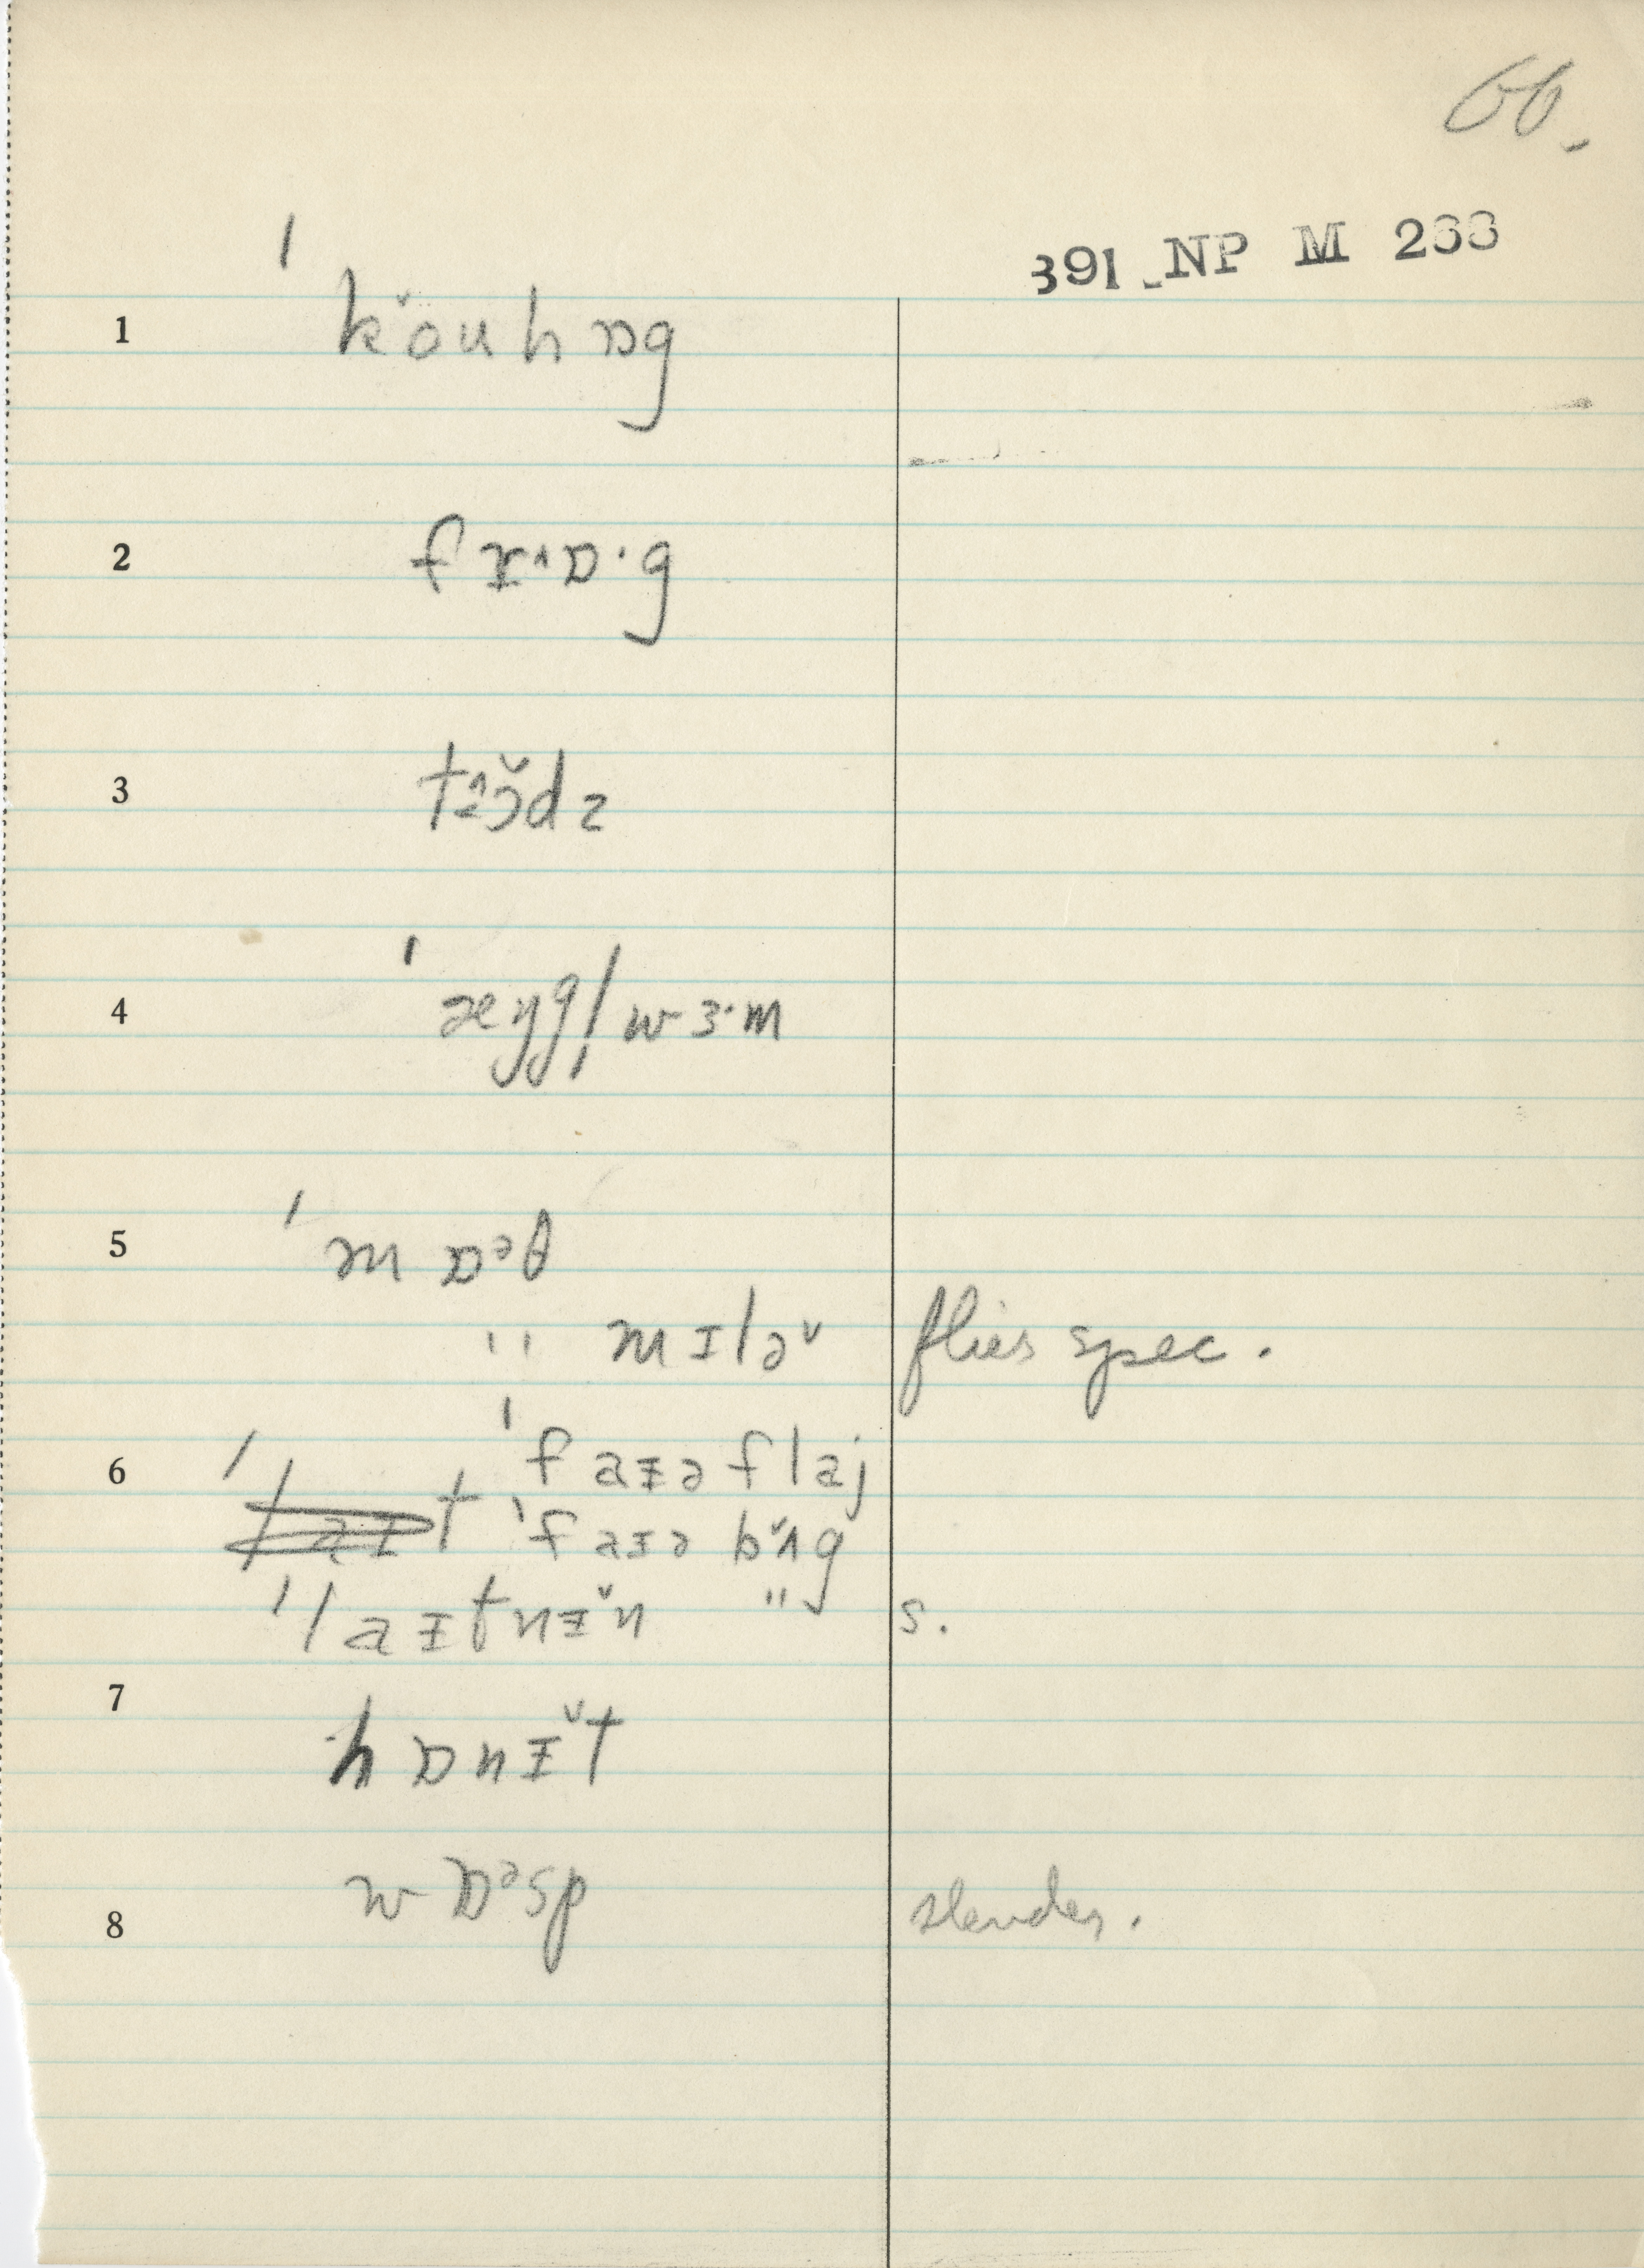 66.
391 NP M 233
1 ˈkŏuhɒg
2 frʌɒ·g
3 toɔ̆dz
4 ˈæŋgl̩wɜ·m
5 ˈmɒᵊθ
" mɪlə˅ flies spec.
6 ˈfaɪəflaj
ˈlaɪt ˈfaɪəbʌ̆g
ˈlaɪtnɪ̆n " s.
7 hɒnɪ̆t
8 wɒᵊsp slender.